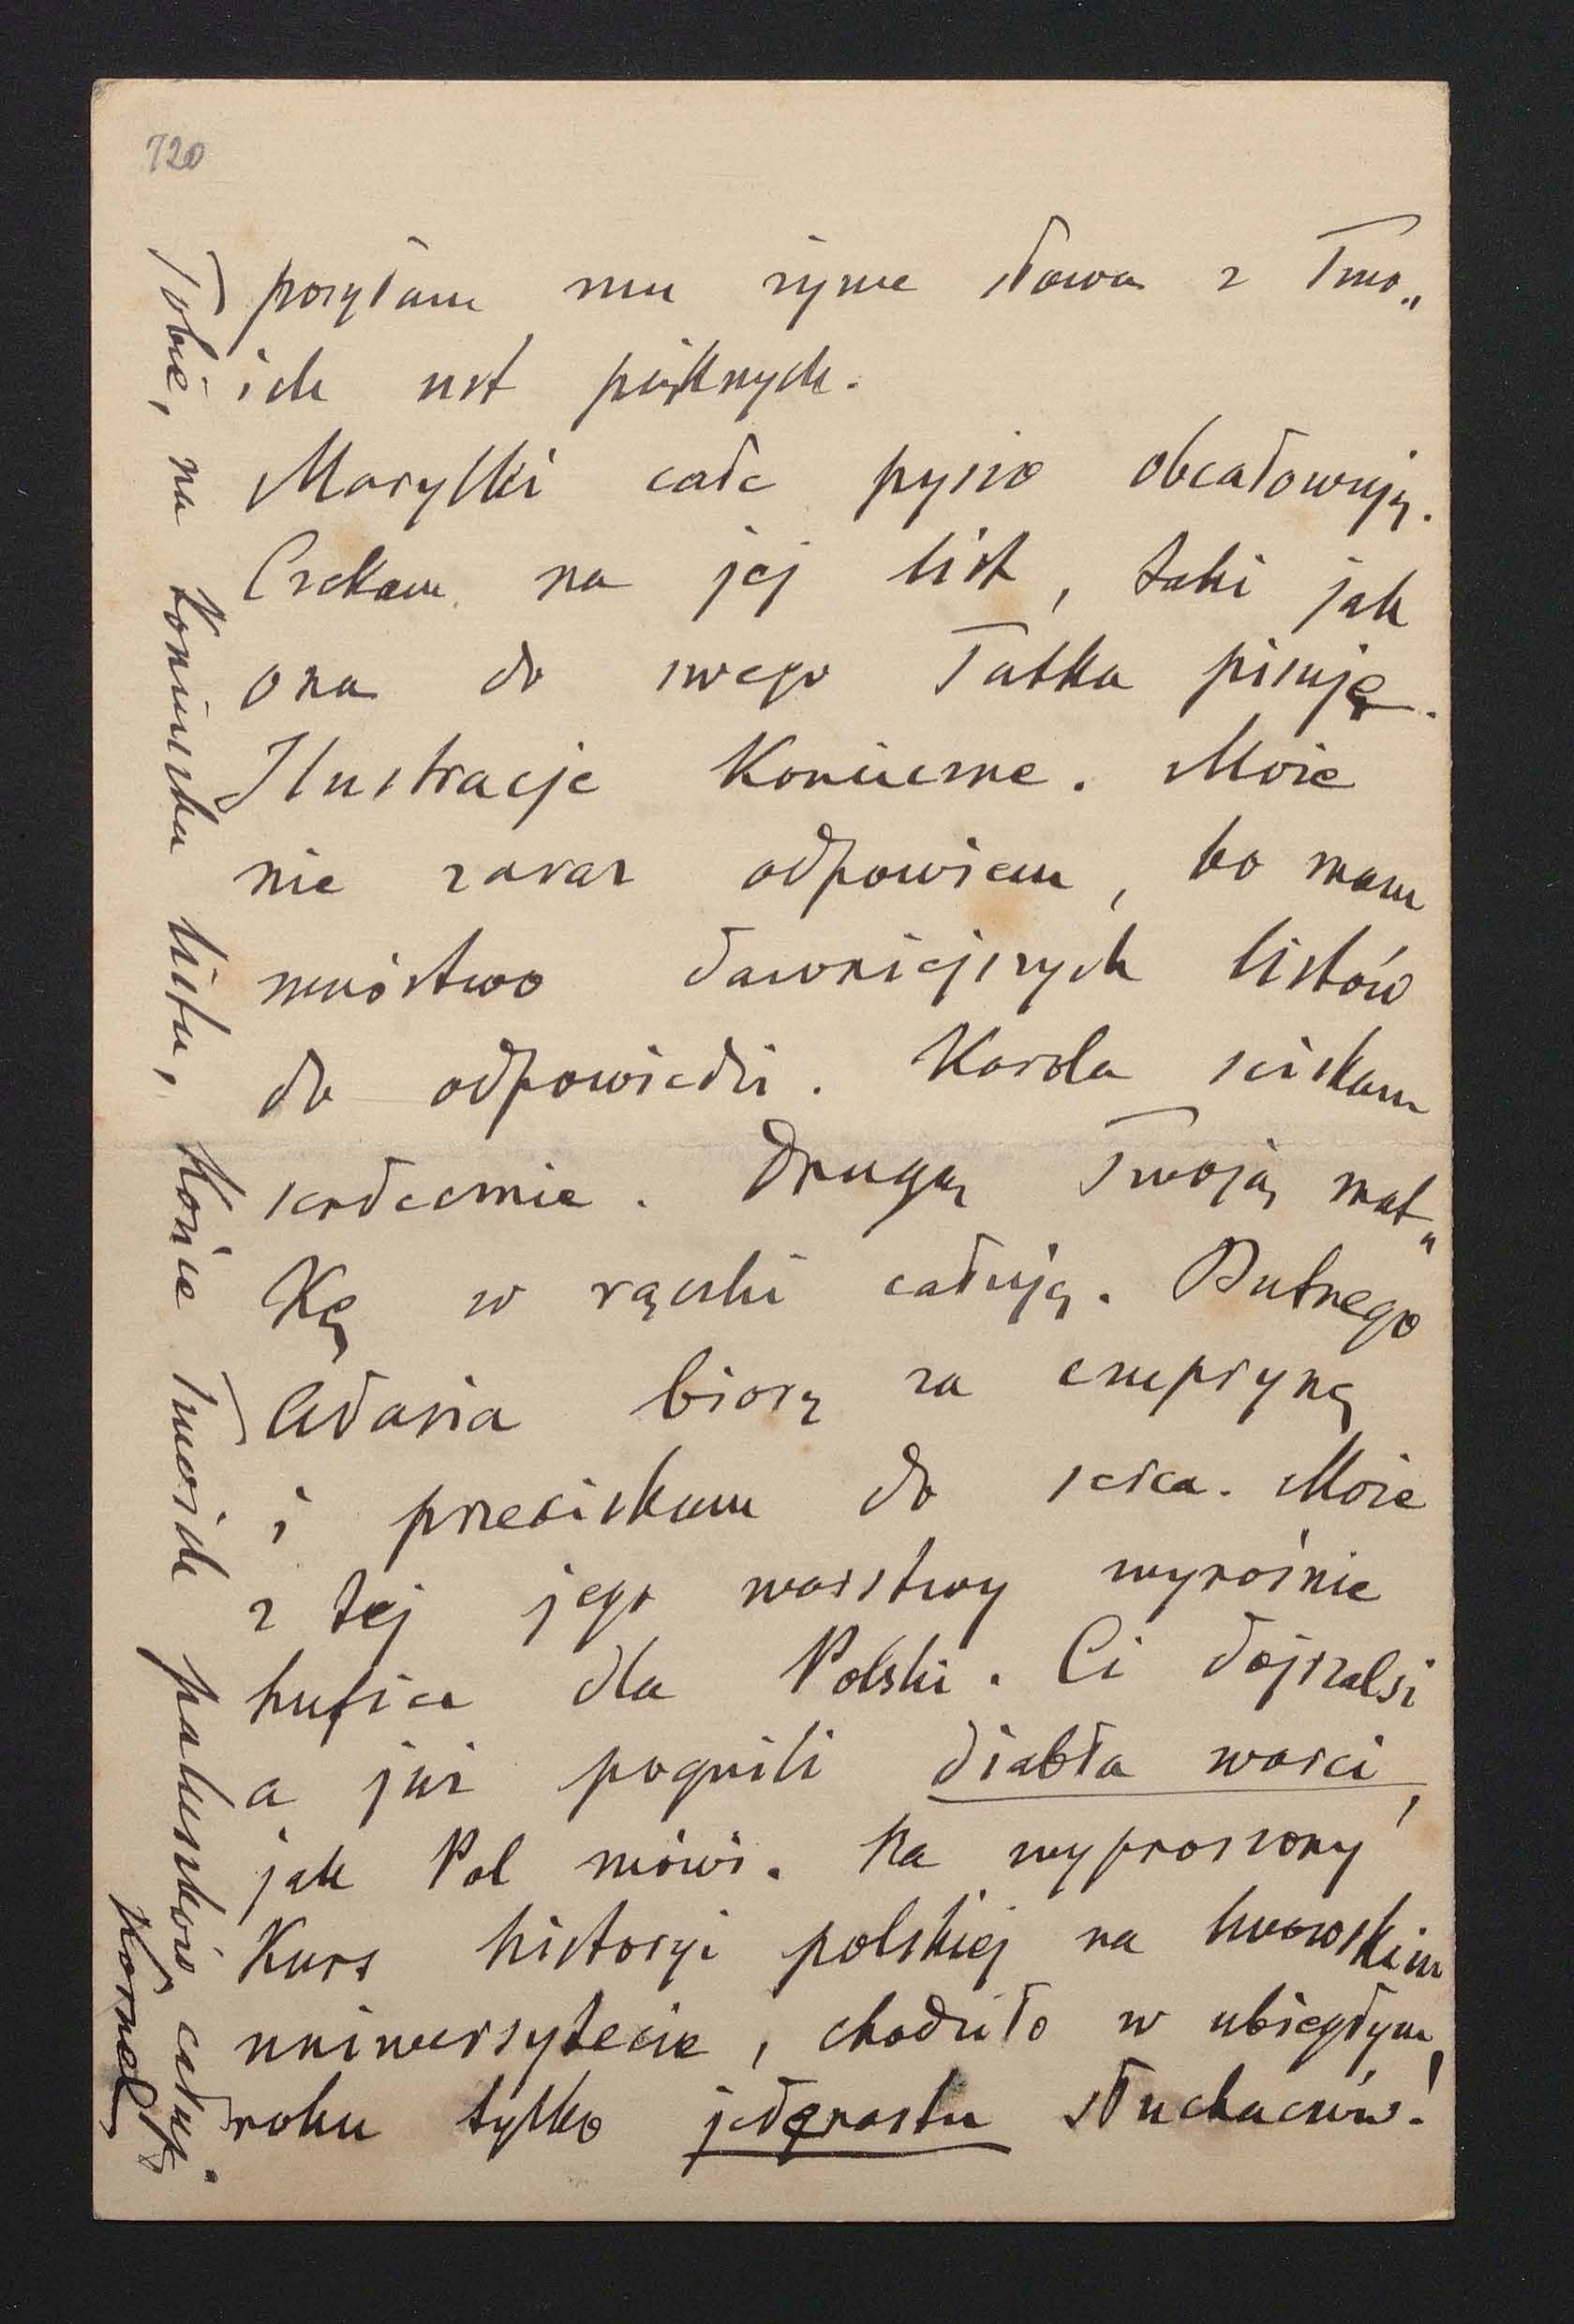 720
posyłam mu żywe słowa z Two„
ich ust pięknych.
Marylki całe pysio obcałowuję.
Czekam na jej list, taki jak
ona do swego Tatka pisuje.
Ilustracje konieczne. Może
nie zaraz odpowiem, bo mam
mnóstwo dawniejszych listów
do odpowiedzi. Karola ściskam
serdecznie. Drugą Twoją mat„
kę w rączki całuję. Butnego
Adasia biorę za czuprynę
i przeciskam do serca. Może
z tej jego warstwy wyrośnie
hufiec dla Polski. Ci dojrzalsi
a już pognili diabła warci,
jak Pol mówi. Na wyproszony
kurs historyi polskiej na lwowskim
uniwersytecie, chodziło w ubiegłym
roku tylko jedenastu słuchaczów!
Tobie, na koniuszku listu, końce Twoich paluszków całuję.
Kornel